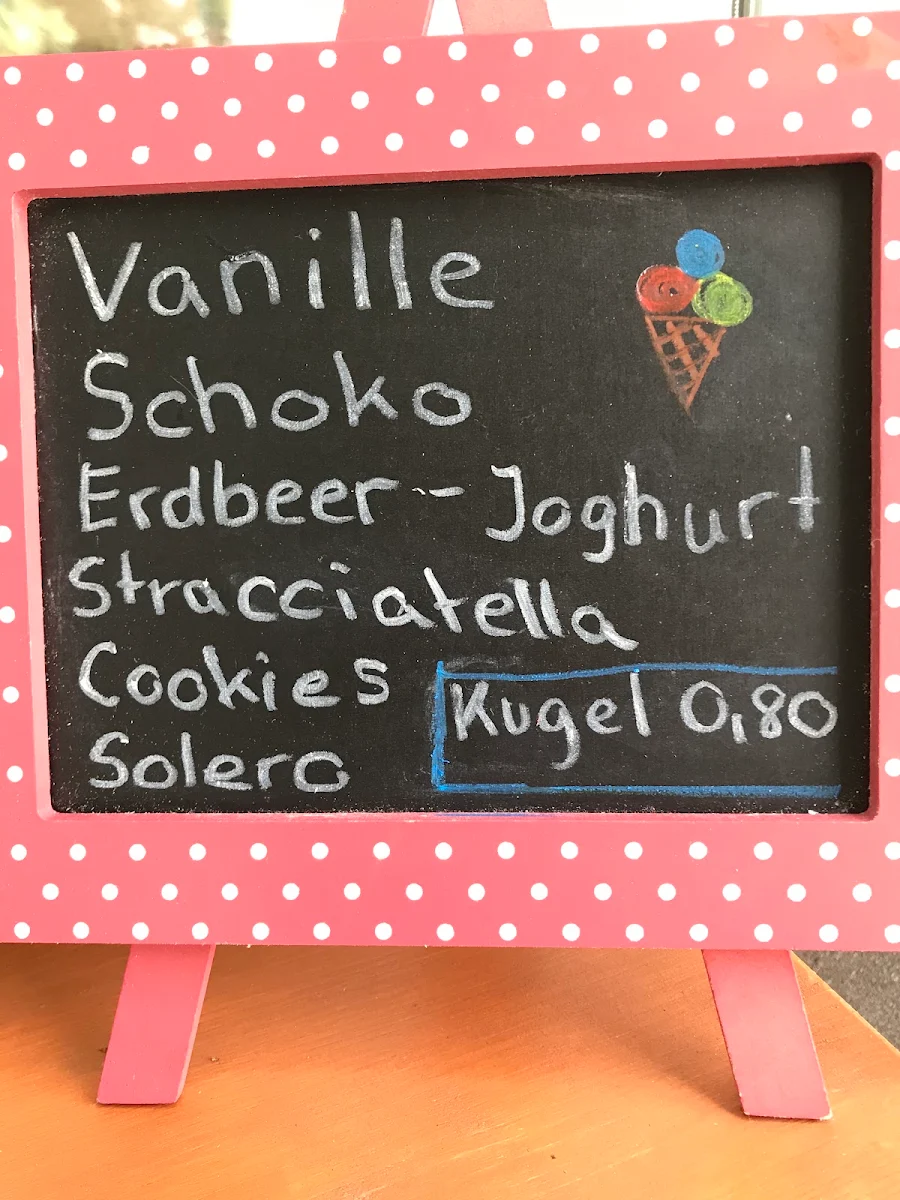 Vanille
Schoko
Erdbeer - Joghurt
Stracciatella
Cookies
Kugel 0,80
Solero